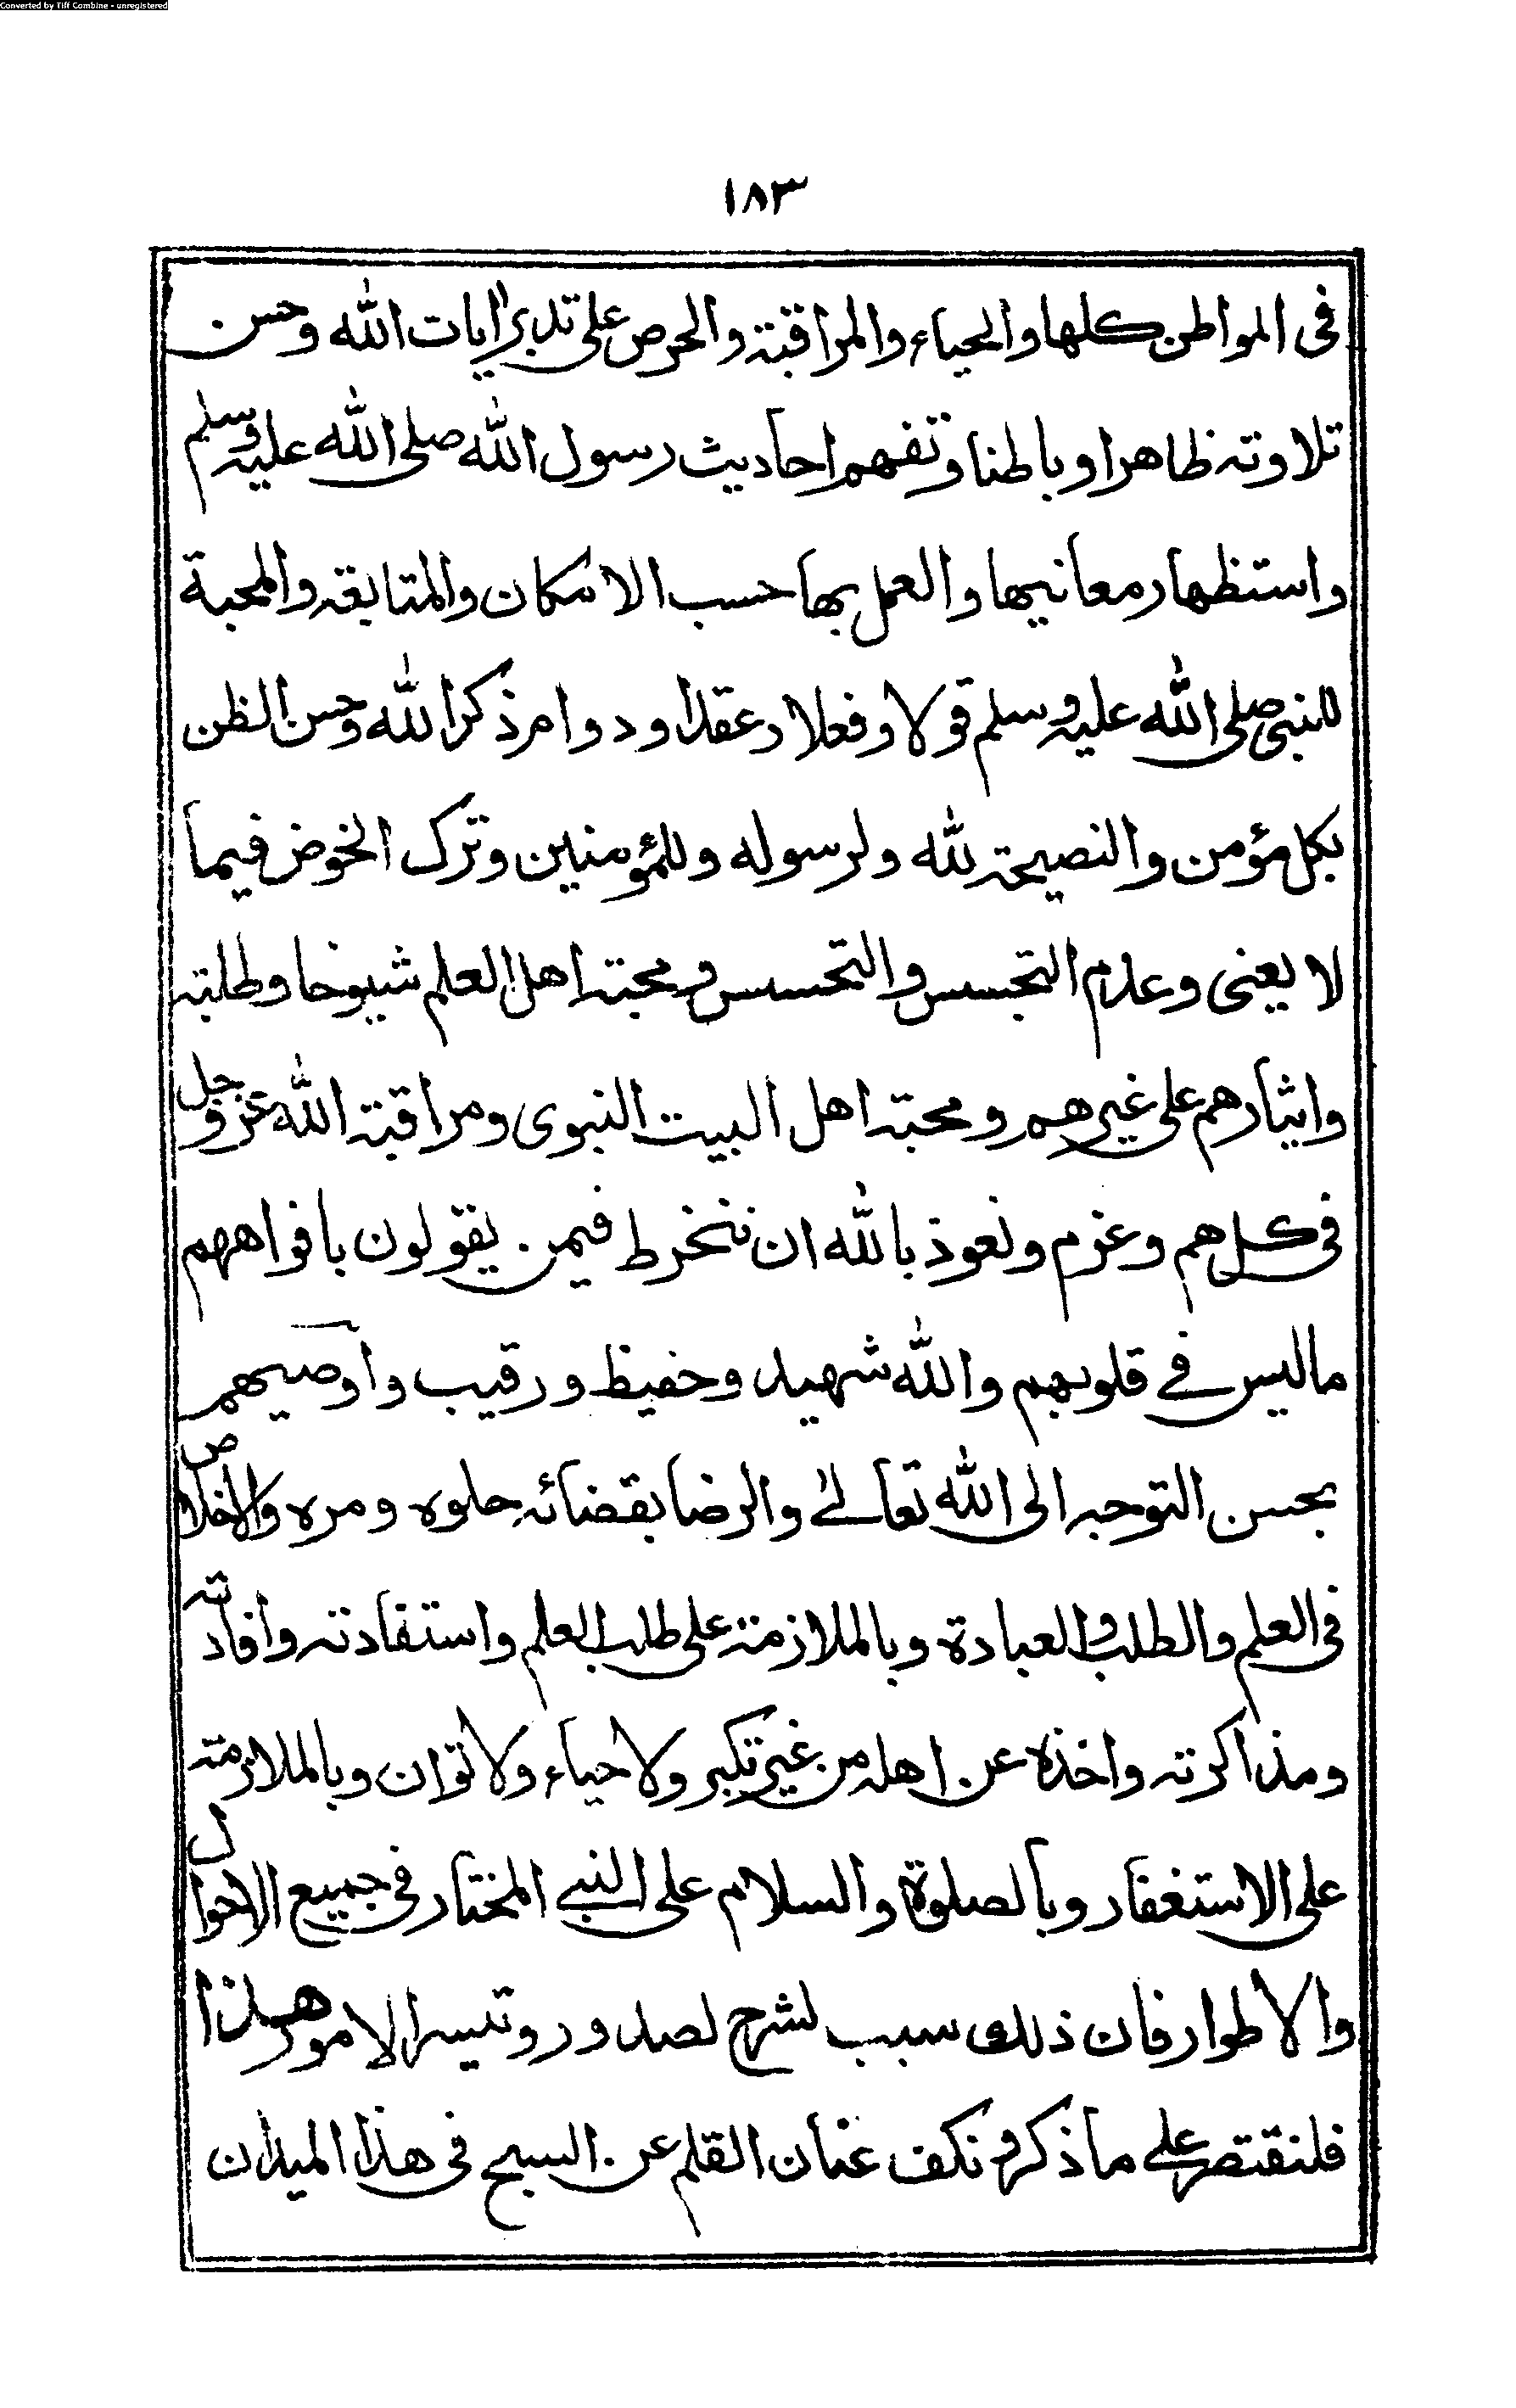 Converted by Tiff Combine - unregistered
١٨٣
فی المواطن كلها والحياء والمراقبة والحرص علی تدبر ايات الله وحسن
تلاوته ظاهرا وباطنا وتفهم احاديث رسول الله صلی الله عليه وسلم
واستظهار معانيها والعمل بها حسب الامكان والمتابعة والمحبة
للنبی صلی الله عليه وسلم قولا وفعلا وعقدا ودوام ذكر الله وحسن الظن
بكل مؤمن والنصيحة لله ولرسوله وللمؤمنين وترك الخوض فيما
لا يعنی وعدم التجسس والتحسس ومحبة اهل العلم شيوخا وطلبة
وايثارهم علی غيرهم ومحبة اهل البيت النبوی ومراقبة الله عز وجل
فی كل هم وعزم ونعوذ بالله ان ننخرط فيمن يقولون بافواههم
ما ليس فے قلوبهم والله شهيد وحفيظ ورقيب واوصيهم
بحسن التوجه الی الله تعالے والرضا بقضائه حلوه ومره والاخلاص
فی العلم والطلب والعبادة وبالملازمة علی طلب العلم واستفادته وافادته
ومذاكرته واخذه عن اهله من غير تكبر ولا حياء ولا توان وبالملازمة
علی الاستغفار وبالصلوة والسلام علی النبے المختار فی جميع الاحوال
والاطوار فان ذلك سبب لشرح لصدور وتيسر الامور هذا
فلنقتصر علے ما ذكر ونكف عنان القلم عن السبح فی هذا الميدان